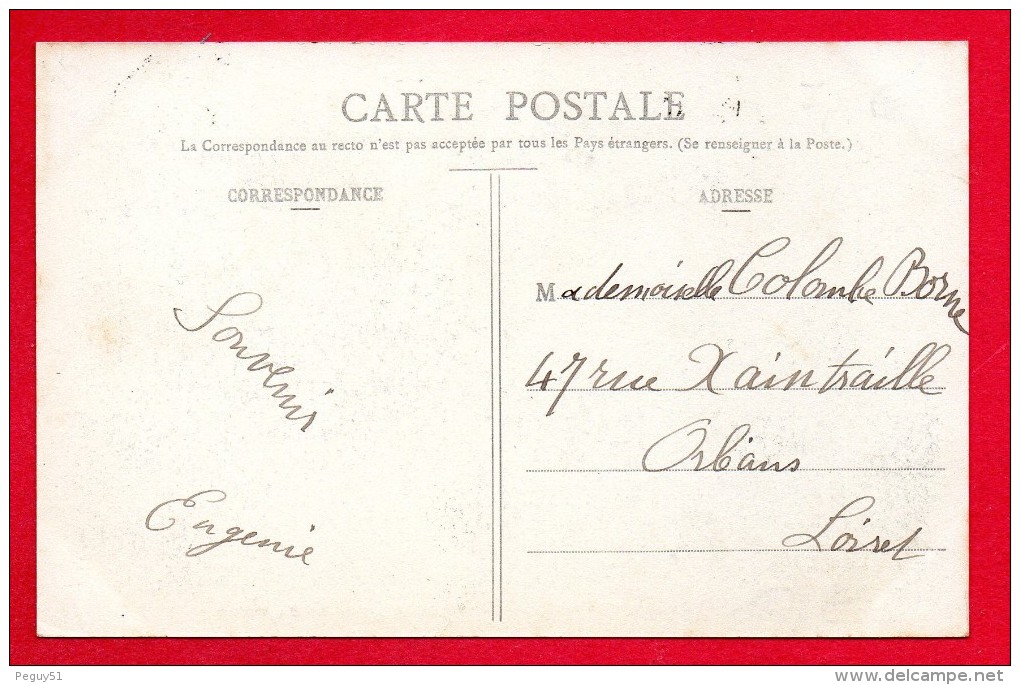 CARTE POSTALE
La Correspondance au recto n'est pas acceptée par tous les Pays étrangers. (Se renseigner à la Poste.)
CORRESPONDANCE
Souvenir
Eugenie
ADRESSE
Mademoiselle Colombe Borne
47 rue Xaintraille
Orléans
Loiret
Peguy51
delcampe.net